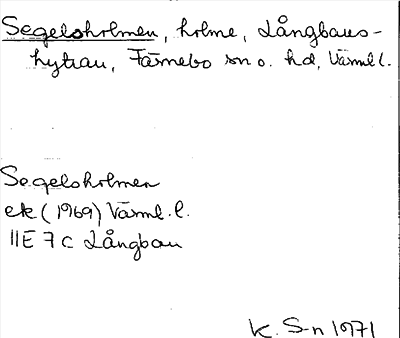 Segelsholmen, holme, Långbans-
hyttan, Färnebo sn o. hd, Värml l.
Segelsholmen
ek (1969) Värml. l.
11E 7 c Långban
K. S-n 1971